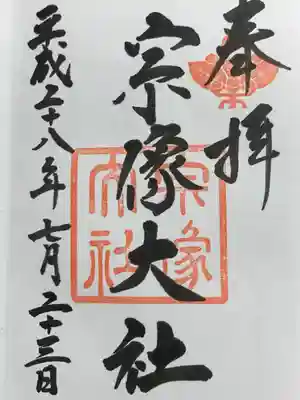 奉拝
宗像大社
平成二十八年七月二十三日
宗像
大社